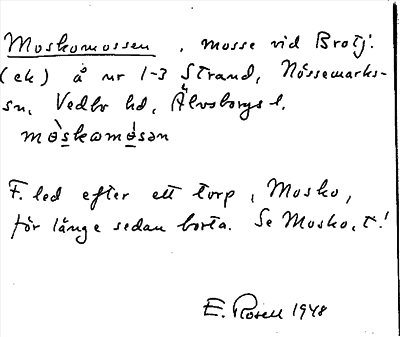 Moskomossen, mosse vid Brotj.
(ek) å nr 1-3 Strand, Nössemarks-
sn, Vedbo hd, Älvsborgs l.
F. led efter ett torp, Mosko,
för länge sedan borta. Se Mosko, t.!
E. Rosell 1948